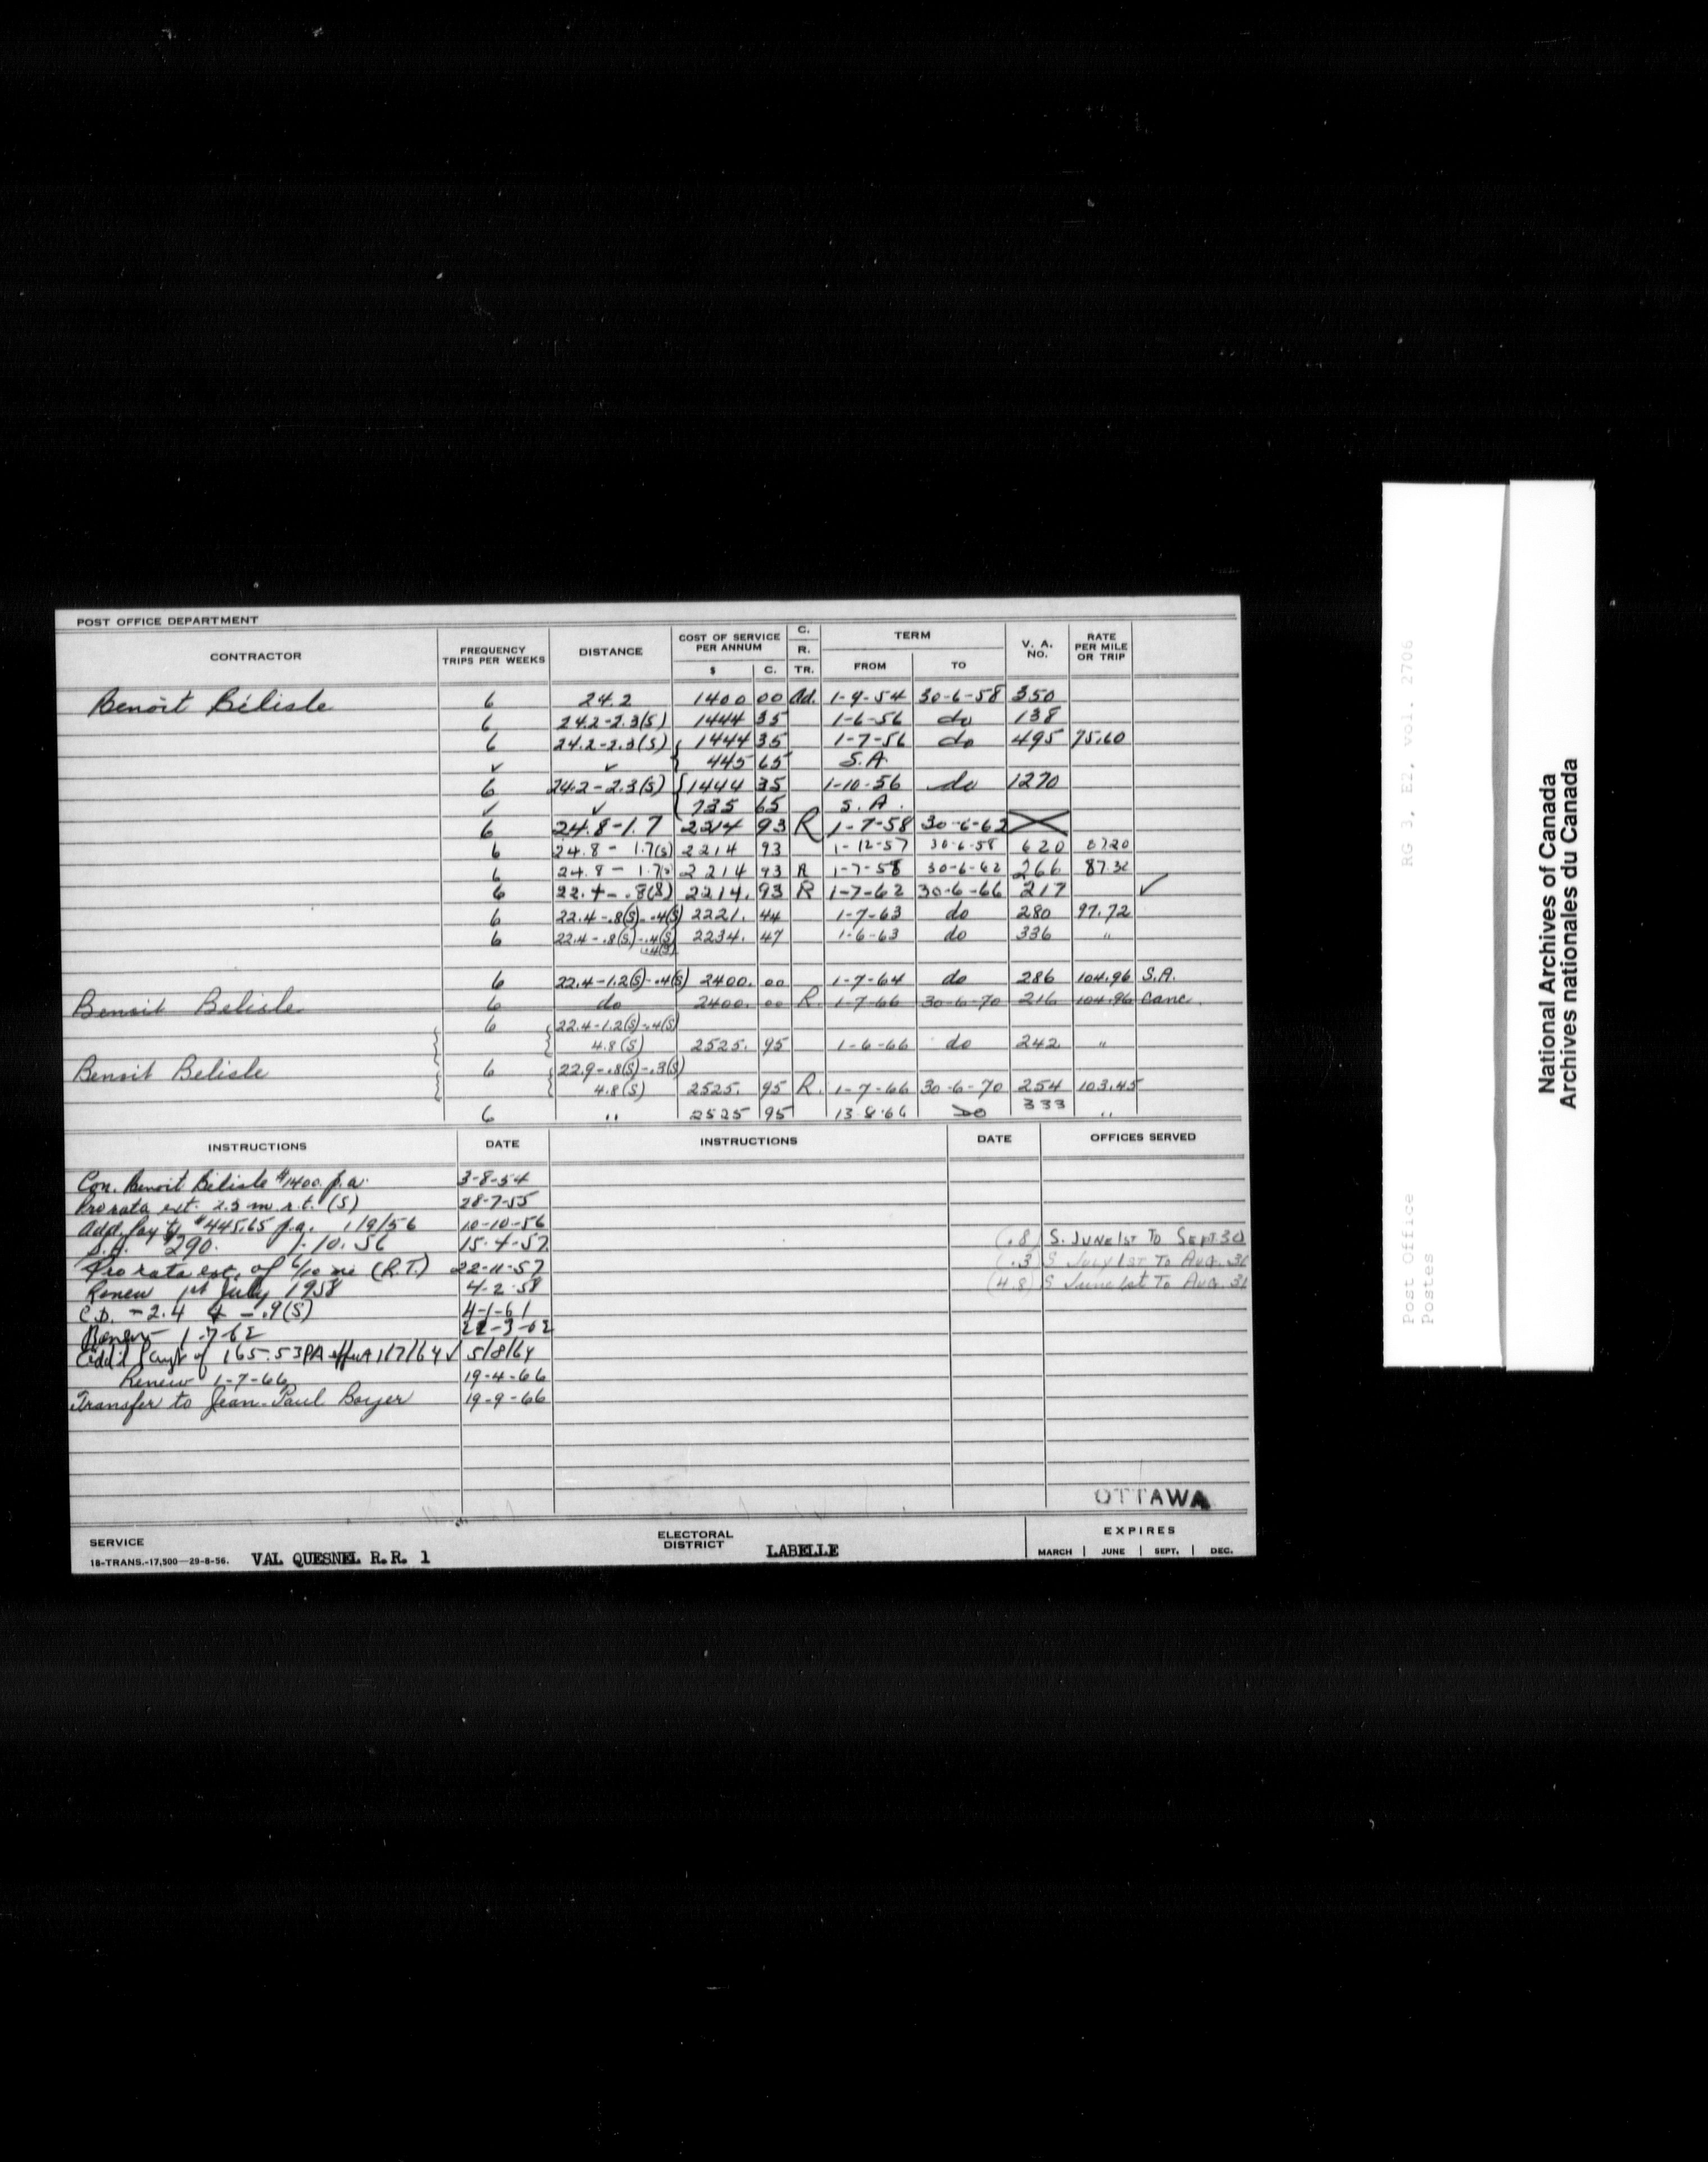 POST OFFICE DEPARTMENT
CONTRACTOR FREQUENCY TRIPS PER WEEKS DISTANCE COST OF SERVICE PER ANNUM $ C. C. R. TR. TERM FROM TO V. A. NO. RATE PER MILE OR TRIP
Benoit Bélisle 6 24.2 1400 00 Ad. 1-9-54 30-6-58 350
6 24.2-2.3(S) 1444 35 1-6-56 do 138
6 24.2-2.3(S) { 1444 35 1-7-56 do 495 75.60
✓ ✓ 445 65 S.A.
6 24.2-2.3(S) { 1444 35 1-10-56 do 1270
✓ ✓ 735 65 S.A.
6 24.8-1.7 2214 93 R 1-7-58 30-6-62
6 24.8-1.7(S) 2214 93 1-12-57 30-6-58 620 8720
6 24.8-1.7(S) 2214 93 R 1-7-58 30-6-62 266 87.32
6 22.4-.8(S) 2214.93 R 1-7-62 30-6-66 217 ✓
6 22.4-.8(S)-.4(S) 2221.44 1-7-63 do 280 97.72
6 22.4-.8(S)-.4(S) 2234.47 1-6-63 do 336 "
.4(S)
6 22.4-1.2(S)-.4(S) 2400.00 1-7-64 do 286 104.96 S.A.
Benoit Belisle 6 do 2400.00 R. 1-7-66 30-6-70 216 104.96 Canc.
6 22.4-1.2(S)-.4(S)
4.8(S) 2525.95 1-6-66 do 242 "
Benoit Belisle 6 22.9-.8(S)-.3(S)
4.8(S) 2525.95 R. 1-7-66 30-6-70 254 103.45
6 " 2525 95 13-8-66 Do 333 "
INSTRUCTIONS DATE INSTRUCTIONS DATE OFFICES SERVED
Con. Benoit Bélisle $1400. p.a. 3-8-54
Pro rata ext. 2.3 m r.t. (S) 28-7-55
Add. Pay't $445.65 p.a. 1/9/56 10-10-56
S.A. $290. 1-10-56 15-4-57 (.8) S. JUNE 1ST TO SEPT 30
Pro rata ext. of 6/10 me (R.T.) 22-11-57 (.3) S July 1ST To AUG. 31
Renew 1st July 1958 4-2-58 (4.8) S June 1st To AUG. 31
C.D. -2.4 & -.9(S) 4-1-61
Renew 1-7-62 22-3-62
Add'l Paym't of 165.53 PA effect 1/7/64 ✓ 5/8/64
Renew 1-7-66 19-4-66
Transfer to Jean-Paul Boyer 19-9-66
OTTAWA
SERVICE VAL QUESNEL R.R. 1 ELECTORAL DISTRICT LABELLE EXPIRES
18-TRANS.-17,500—29-8-56. MARCH | JUNE | SEPT. | DEC.
RG 3, E2, vol. 2706
Post Office
Postes
National Archives of Canada
Archives nationales du Canada